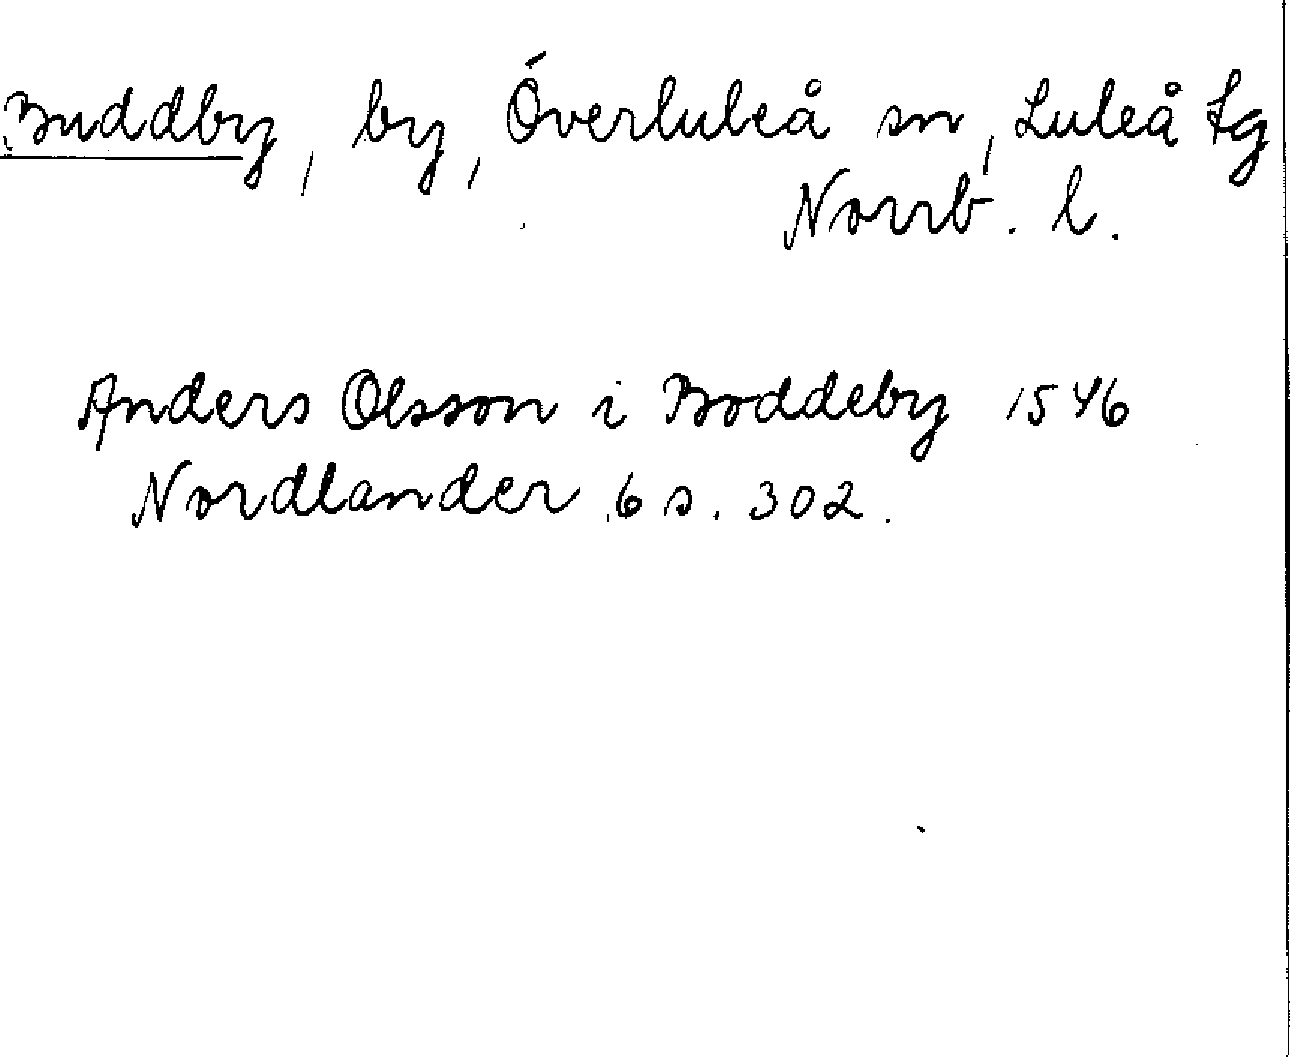 Buddby, by, Överluleå sn, Luleå tg
Norrb. l.
Anders Olsson i Boddeby 1546
Nordlander 6 s. 302.